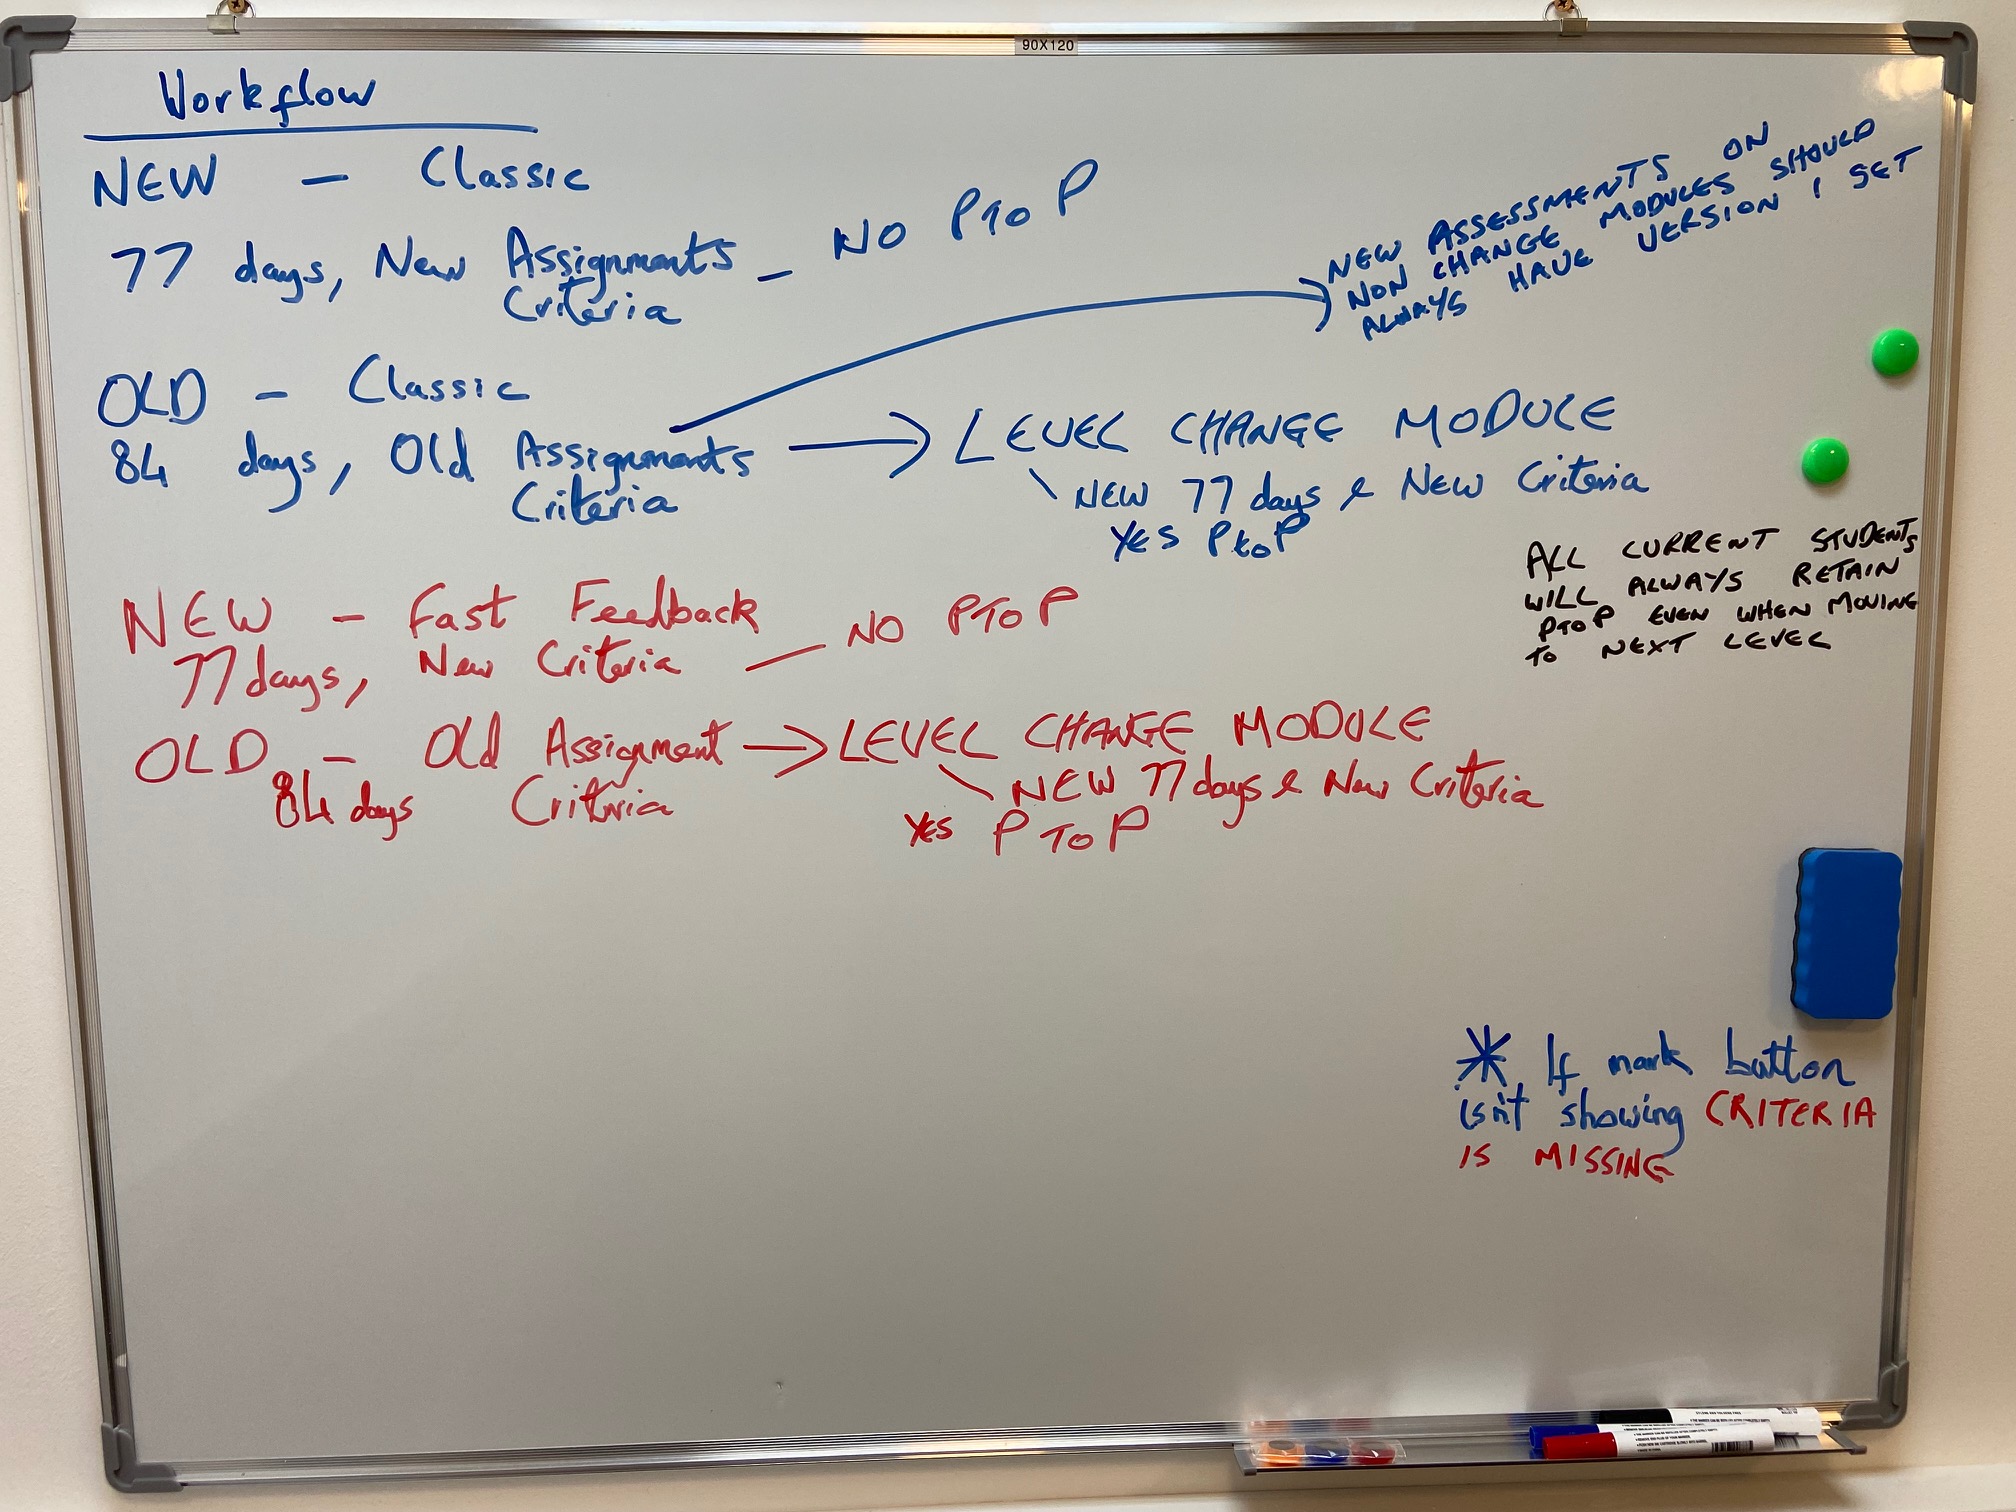 90X120
Workflow
NEW - Classic
77 days, New Assignments - NO PToP
Criteria
NEW ASSESSMENTS ON
NON CHANGE MODULES SHOULD
ALWAYS HAVE VERSION 1 SET
OLD - Classic
84 days, Old Assignments → LEVEL CHANGE MODULE
Criteria
NEW 77 days & New Criteria
YES PtoP
ALL CURRENT STUDENTS
WILL ALWAYS RETAIN
PTOP EVEN WHEN MOVING
TO NEXT LEVEL
NEW - Fast Feedback
77 days, New Criteria - NO PTOP
OLD - Old Assignment → LEVEL CHANGE MODULE
84 days Criteria
NEW 77 days & New Criteria
YES PToP
* If mark button
isn't showing CRITERIA
IS MISSING